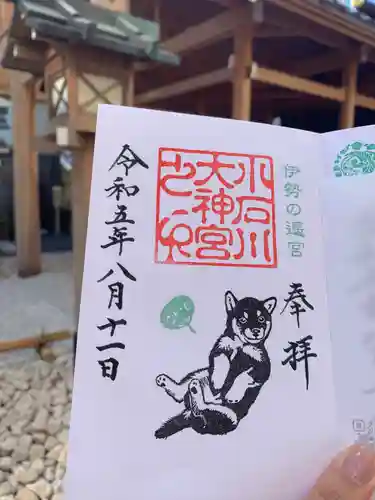 伊勢の遙宮
奉拝
小石川
大神宮
之印
令和五年八月十一日